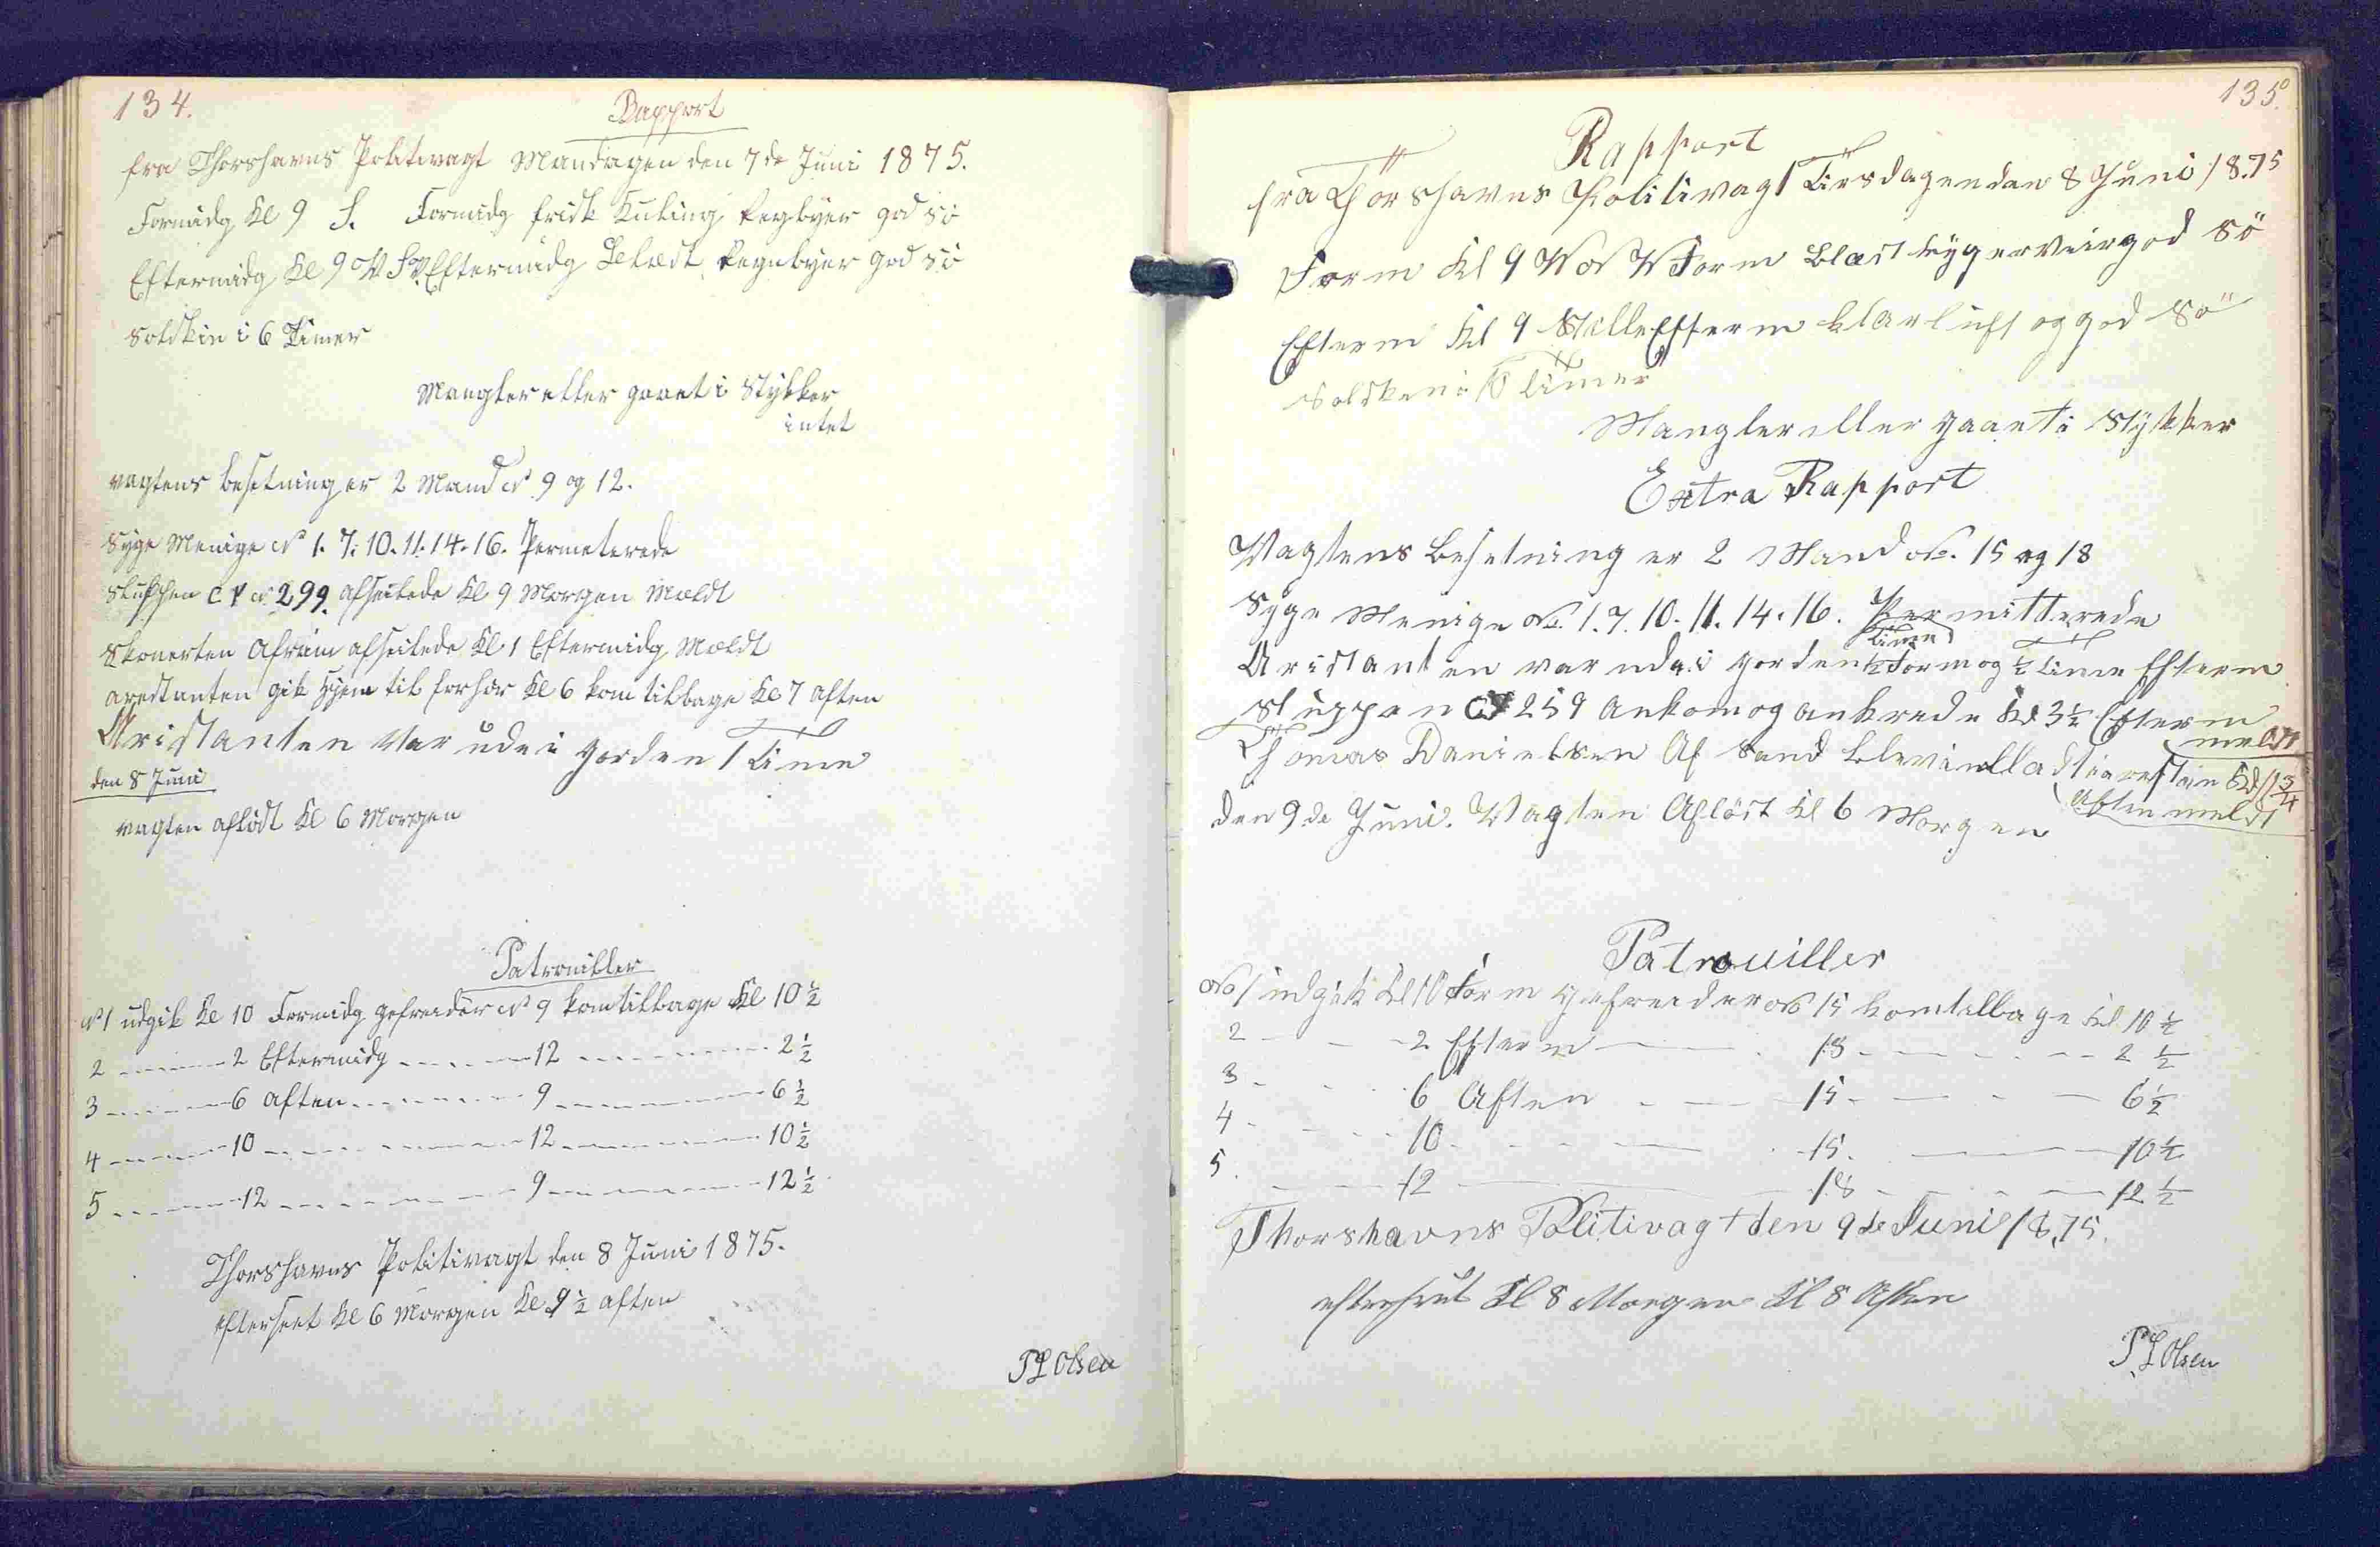 134.
Rapport
fra Thorshavns Politivagt Mandagen den 7de Juni 1875.
Formidg Kl 9 S. Formidg frisk Kuling Regbyer god Sö
Eftermidg Kl 9 V S V Eftermidg Regnbyer god Sö
Solskin i 6 Timer
Mangler eller gaaet i Stykker
intet
vagtens besetning er 2 Mand No 9 og 12.
Syge Menige No 1. 7. 10. 11. 14. 16. Permeterede
Sluppen No 299. afseilede Kl 9 Morgen Mældt
Skonerten afseilede Kl 1 Eftermidg Mældt
arestanten gik Hjem til forhör Kl 6 kom tilbage Kl 7 aften
Aristanten Var ude i gorden 1 Time
den 8 Juni
vagten aflöst Kl 6 Morgen
Patrouiller
No 1 udgik Kl 10 Formidg gefreider No 9 kom tilbage Kl 10 1/2
2 - - - 2 Eftermidg - - - 12 - - - 2 1/2
3 - - - 6 aften - - - 9 - - - 6 1/2
4 - - - 10 - - - 12 - - - 10 1/2
5 - - - 12 - - - 9 - - - 12 1/2
Thorshavns Politivagt den 8 Juni 1875.
efterseet Kl 6 Morgen Kl 9 1/2 aften
P L Olsen
135.
Rapport
fra Thörshavns Politivagt Tirsdagen den 8 Juni 1875
Form Kl 9 V Form Blæst god Sö
Efterm Kl 9 Stille Efterm klarluft og god Sö
Solsken i Timer
Mangler eller gaaet i Stykker
Extra Rapport
Vagtens Besetning er 2 Mand No. 15 og 18
Syge Menige No. 1. 7. 10. 11. 14. 16. Permitterede
Aristanten var ude i gorden 1/2 Time Form og 1/2 Time Efterm
Sluppen 259 Ankom og ankrede Kl 3 1/2 Efterm
meldt
Thomas Danielsen Af Sand blev Kl 11 3/4
Aften meldt
den 9de Juni. Vagten Aflöst Kl 6 Morgen
Patrouiller
No 1 udgik Kl 10 Form Gefreider No 15 kom tilbage Kl 10 1/2
2 - - - 2 Efterm - - - 18 - - - 2 1/2
3 - - - 6 Aften - - - 15 - - - 6 1/2
4 - - - 10 - - - 15 - - - 10 1/2
5 - - - 12 - - - 18 - - - 12 1/2
Thorshavns Politivagt den 9de Juni 1875.
efterseet Kl 8 Morgen Kl 8 Aften
P L Olsen